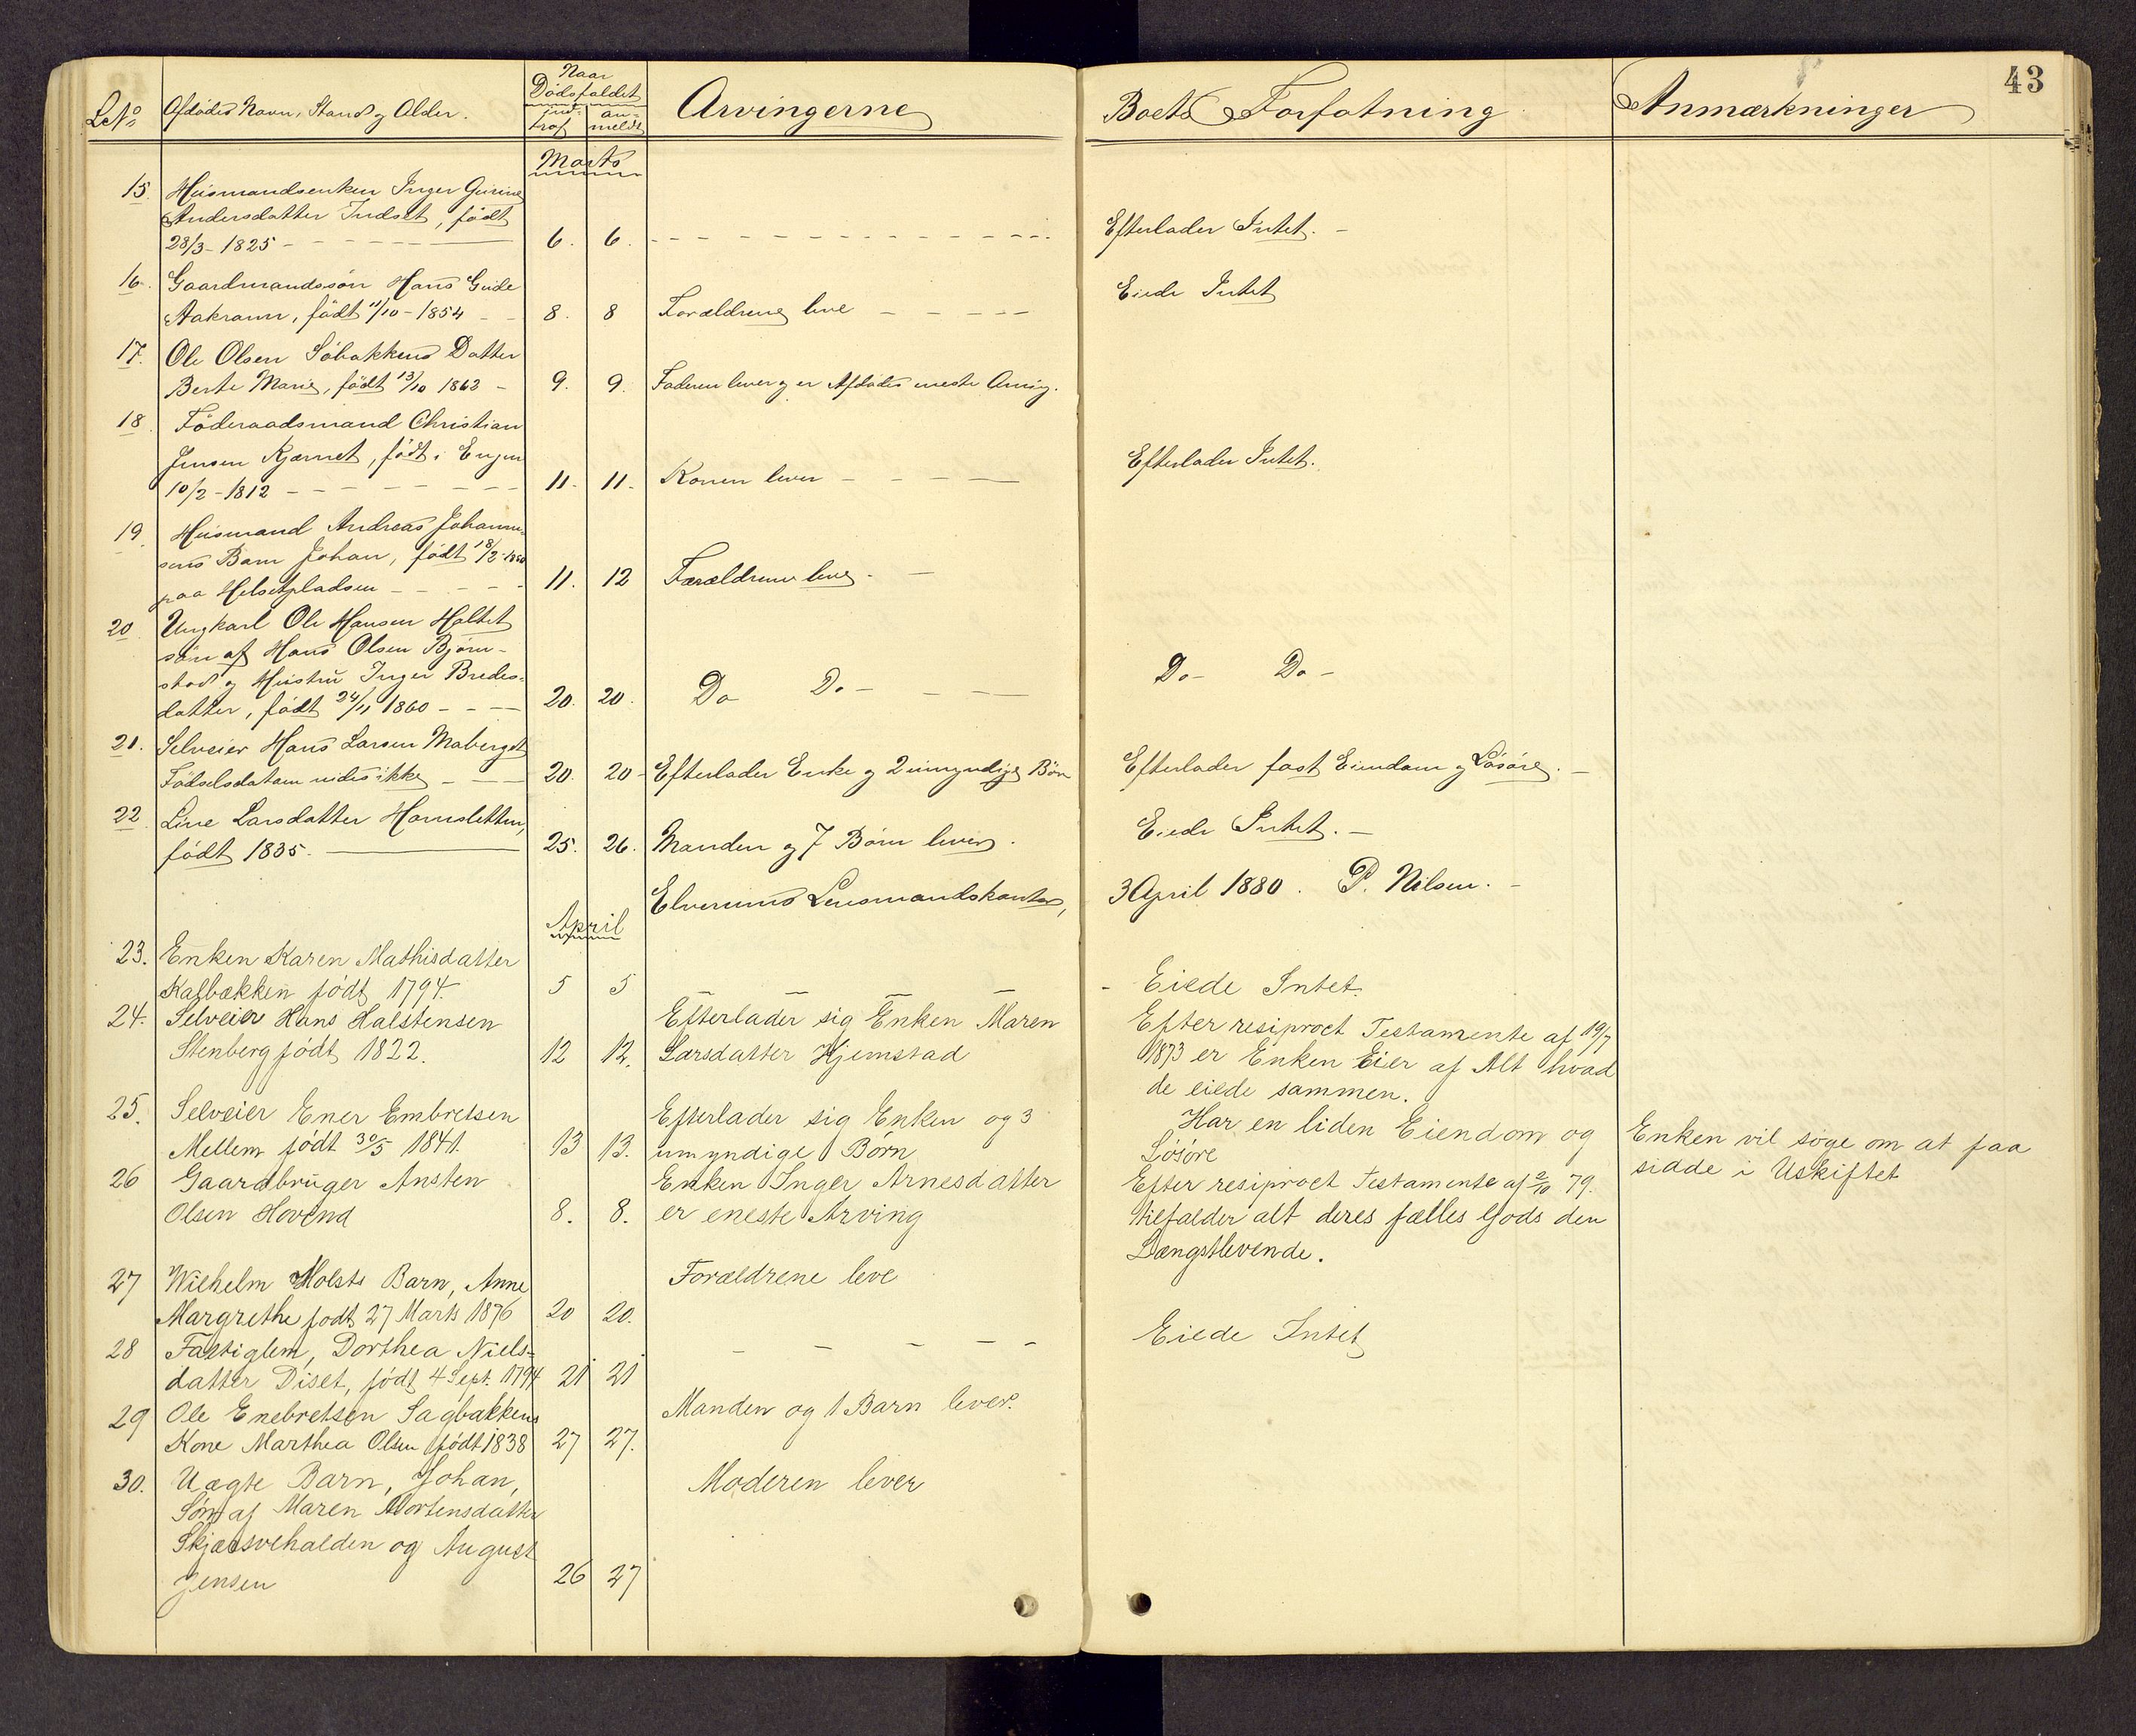 43
LNo Afdødes Navn, Stand og Alder. Naar Dødsfaldet indtraf anmeldt Arvingerne Boets Forfatning Anmærkninger
Marts
15. Huusmandsenken Inger Gurine
Andersdatter Indset, født
28/3 1825 - - - - - - 6. 6. - - - - - - - Efterlader Intet. -
16. Gaardmandssøn Hans Gude Eiede Intet
Aakrann, født 11/10 - 1854 - - 8. 8 Forældrene leve - - - - -
17. Ole Olsen Søbakkens Datter
Berte Marie, født 13/10 1862 - 9. 9. Faderen lever og er Afdødes neste Arving.
18. Föderaadsmand Christian
Jensen Kjærnet, født i Efterlader Intet.
10/2 - 1812 - - - - - - 11. 11. Konen lever - - - -
19. Huusmand Andreas Johann-
sens Barn Johan, født 18/2 - 1880
paa Helsetpladsen - - - - 11. 12 Forældrene leve. -
20 Ungkarl Ole Hansen Holtet
søn af Hans Olsen Bjørn-
stad og Hustru Inger Bredes- Do - Do -
datter, født 24/11 1860 - - - 20. 20. Do Do - - -
21. Selveier Hans Larsen Maberget
Fødselsdatum vides ikke - - - 20. 20 - Efterlader Enke og 2 umyndige Børn Efterlader fast Eiendom og Løsøre. -
22 Line Larsdatter Hornsletten, Eiede Intet. -
født 1835. 25. 26. Manden og 7 Børn lever.
Elverums Lensmandskontor, 3 April 1880. P. Nilsen. -
April
23. Enken Karen Mathisdatter
Kalbækken født 1794. 5 5 - - - - - Eiede Intet.
24. Selveier Hans Halstensen Efterlader sig Enken Maren Efter resiproct Testamente af 19/7
Stenberg født 1822. 12 12. Larsdatter Hjemstad 1873 er Enken Eier af Alt hvad
de eiede sammen.
25. Selveier Ener Embretsen Efterlader sig Enken og 3 Har en liden Eiendom og Enken vil søge om at faa
Mellem født 30/5 1841. 13 13. umyndige Børn Løsøre sidde i Uskiftet
26 Gaardbruger Ansten Enken Inger Arnesdatter Efter resiproct Testamente af 2/10 79.
Olsen Hovend 8. 8. er eneste Arving tilfalder alt deres fælles Gods den
Længstlevende.
27 Wilhelm Holsts Barn, Anne Forældrene leve
Margrethe født 27 Marts 1876 20 20.
28 Fattiglem, Dorthea Niels= - - - - - Eiede Intet
datter Diset, født 4 Sept. 1794 21 21
29 Ole Enebretsen Sagbakkens Manden og 1 Barn lever.
Kone Marthea Olsen født 1838 27 27.
30. Uægte Barn, Johan, Moderen lever
Søn af Maren Mortensdatter
Skjæsvehalden og August
Jensen 26 27